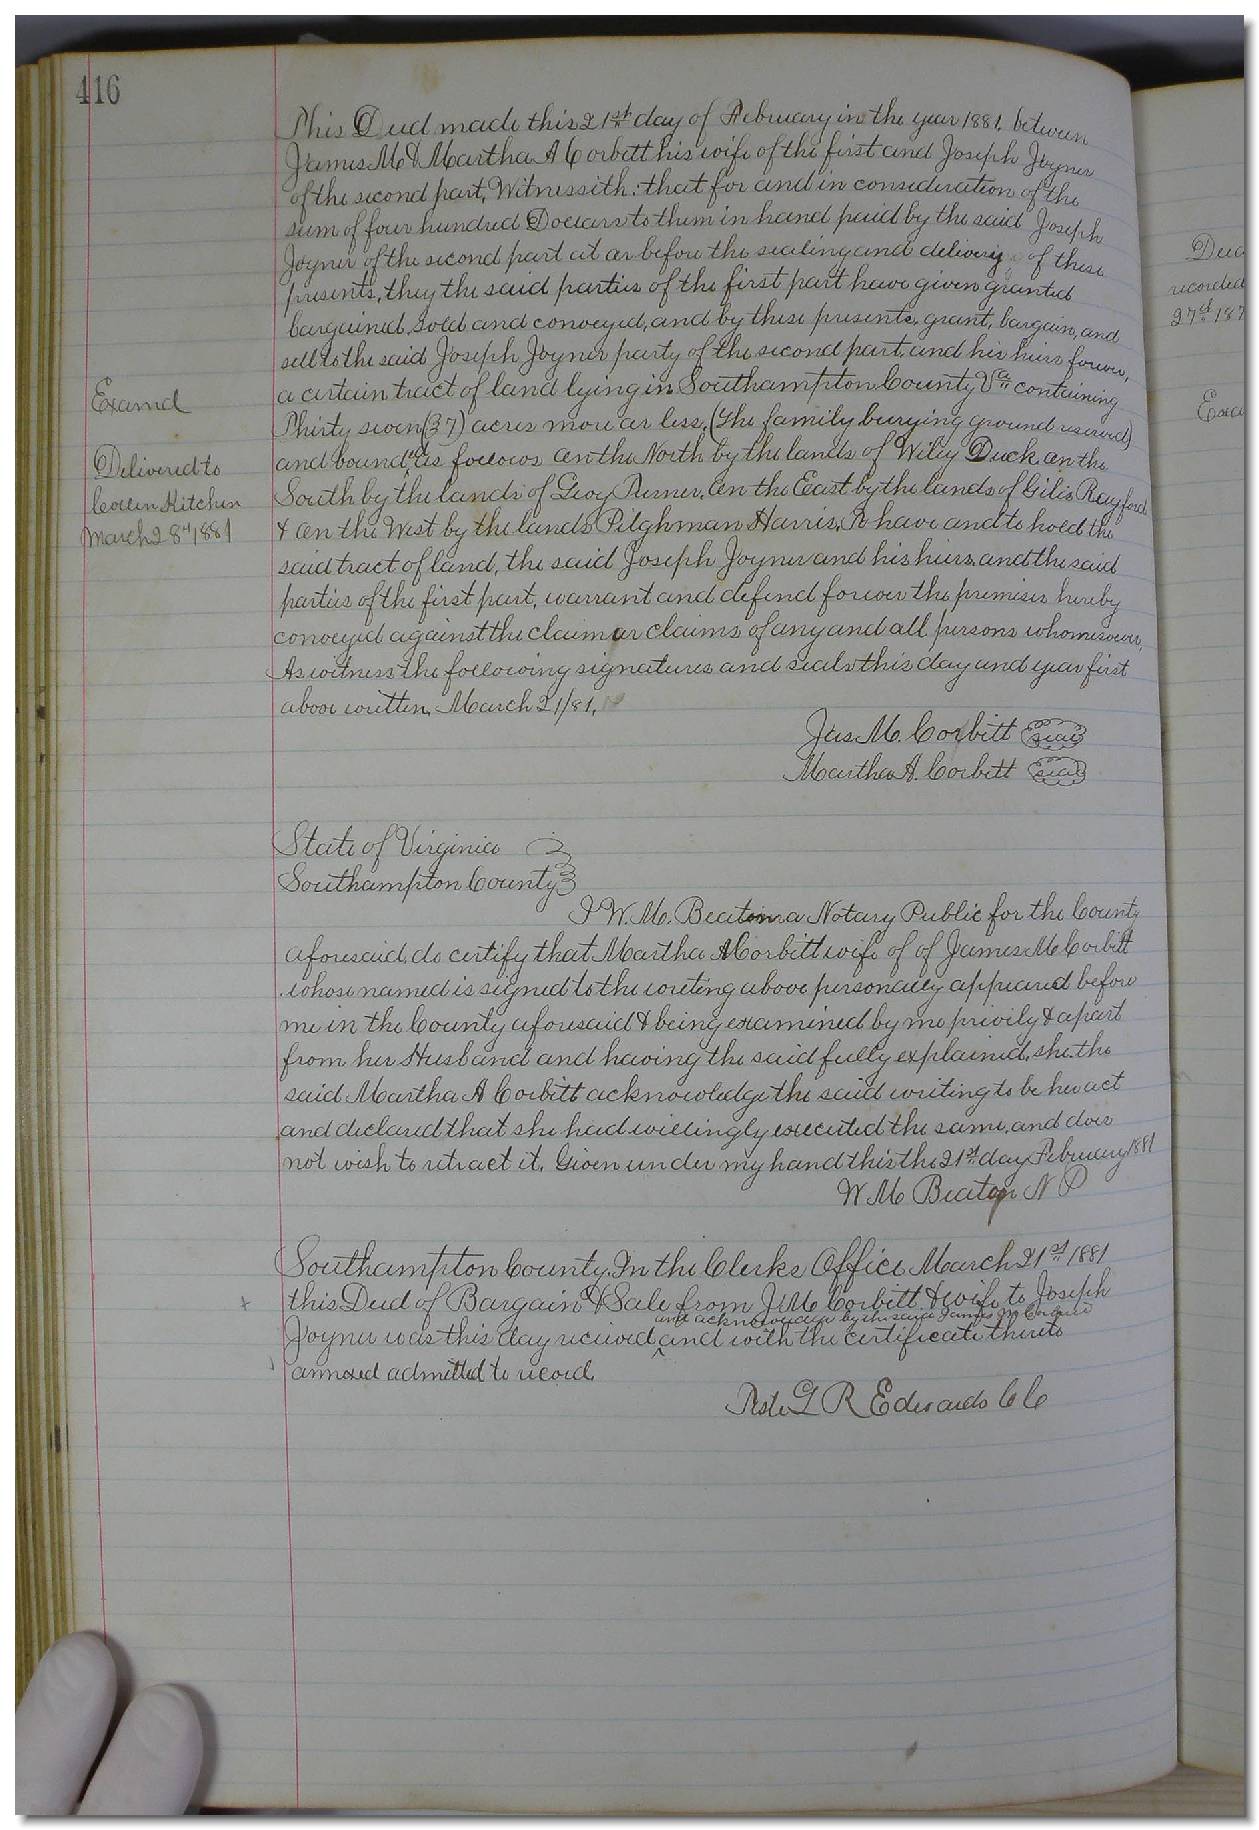 416
This Deed made this 21st day of February in the year 1881, between
James M & Martha A Corbitt his wife of the first and Joseph Joyner
of the second part, Witnessith: that for and in consideration of the
sum of four hundred Dollars to them in hand paid by the said Joseph
Joyner of the second part at or before the sealing and delivery of these
presents, they the said parties of the first part have given granted
bargained, sold and conveyed, and by these presents, grant, bargain, and
sell to the said Joseph Joyner party of the second part, and his heirs forever,
a certain tract of land lying in Southampton County Va containing
Thirty seven (37) acres more or less, (the family burying ground reserved)
and bound'd as follows on the North by the lands of Wiley Duck, on the
South by the lands of Geo Turner, on the East by the lands of Gilis Rayford
& on the West by the lands Pilghman Harris, To have and to hold the
said tract of land, the said Joseph Joyner and his heirs, and the said
parties of the first part, warrant and defend forever the premises hereby
conveyed against the claim or claims of any and all persons whomesoever,
As witness the following signatures and seals this day and year first
above written, March 21/81,
Jas. M. Corbitt seal
Martha A. Corbitt seal
Examd
Delivered to
Kitchen
March 28th 1881
State of Virginia
Southampton County
I W. M. Beaton a Notary Public for the County
aforesaid, do certify that Martha A Corbitt wife of of James M Corbitt
whose named is signed to the writing above personally appeared before
me in the County aforesaid & being examined by me privily & apart
from her Husband and having the said fully explained, she the
said Martha A Corbitt acknowledge the said writing to be her act
and declared that she had willingly executed the same, and does
not wish to retract it, Given under my hand this the 21st day February 1881
W M Beaton N P
Southampton County, In the Clerks Office March 21st 1881
this Deed of Bargain & Sale from J M Corbitt & wife to Joseph
and acknowledge by the said James M Corbitt
Joyner was this day received and with the certificate thereto
annexed admitted to record.
Teste L R Edwards C C
Deed
recorded
27th 187
Exa